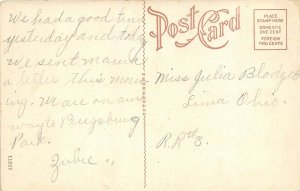 We had a good time
yesterday and today
we sent mama
a letter this morn
ing. We are on our
way to
Park.
Zubie
Post Card
PLACE
STAMP HERE
DOMESTIC
ONE CENT
FOREIGN
TWO CENTS
Miss Julia Blodget
Lima Ohio.
R.R#3.